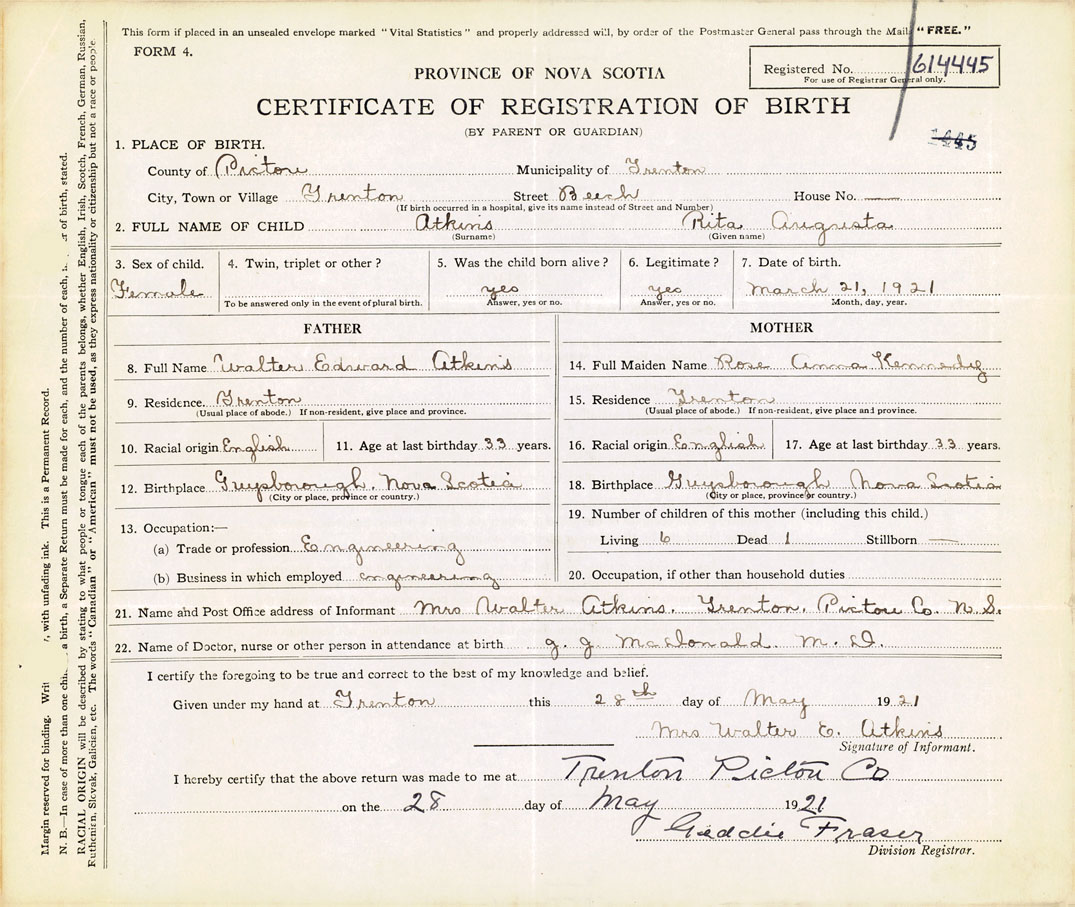 This form if placed in an unsealed envelope marked "Vital Statistics" and properly addressed will, by order of the Postmaster General pass through the Mail "FREE."
FORM 4.
Registered No. 614445
For use of Registrar General only.
PROVINCE OF NOVA SCOTIA
CERTIFICATE OF REGISTRATION OF BIRTH
(BY PARENT OR GUARDIAN)
1. PLACE OF BIRTH.
County of Pictou Municipality of Trenton
City, Town or Village Trenton Street Beech House No. —
(If birth occurred in a hospital, give its name instead of Street and Number)
2. FULL NAME OF CHILD Atkins Rita Augusta
(Surname) (Given name)
3. Sex of child. 4. Twin, triplet or other? 5. Was the child born alive? 6. Legitimate? 7. Date of birth.
Female yes yes March 21, 1921
To be answered only in the event of plural birth. Answer, yes or no. Answer, yes or no. Month, day, year.
FATHER
8. Full Name Walter Edward Atkins
9. Residence. Trenton
(Usual place of abode.) If non-resident, give place and province.
10. Racial origin English 11. Age at last birthday 33 years.
12. Birthplace Guysborough, Nova Scotia
(City or place, province or country.)
13. Occupation:—
(a) Trade or profession Engineering
(b) Business in which employed engineering
MOTHER
14. Full Maiden Name Rose Anna Kennedy
15. Residence Trenton
(Usual place of abode.) If non-resident, give place and province.
16. Racial origin English 17. Age at last birthday 33 years.
18. Birthplace Guysborough Nova Scotia
(City or place, province or country.)
19. Number of children of this mother (including this child.)
Living 6 Dead 1 Stillborn —
20. Occupation, if other than household duties
21. Name and Post Office address of Informant Mrs Walter Atkins. Trenton. Pictou Co. N. S.
22. Name of Doctor, nurse or other person in attendance at birth G. J. MacDonald M. D.
I certify the foregoing to be true and correct to the best of my knowledge and belief.
Given under my hand at Trenton this 28th day of May 1921
Mrs Walter E. Atkins
Signature of Informant.
I hereby certify that the above return was made to me at Trenton Pictou Co
on the 28 day of May 1921
Geddie Fraser
Division Registrar.
Margin reserved for binding. with unfading ink. This is a Permanent Record.
N. B.—In case of more than one a birth, a Separate Return must be made for each, and the number of each, of birth, stated.
RACIAL ORIGIN will be described by stating to what people or tongue each of the parents belongs, whether English, Irish, Scotch, French, German, Russian,
Ruthenian, Slovak, Galician, etc. The words "Canadian" or "American" must not be used, as they express nationality or citizenship but not a race or people.